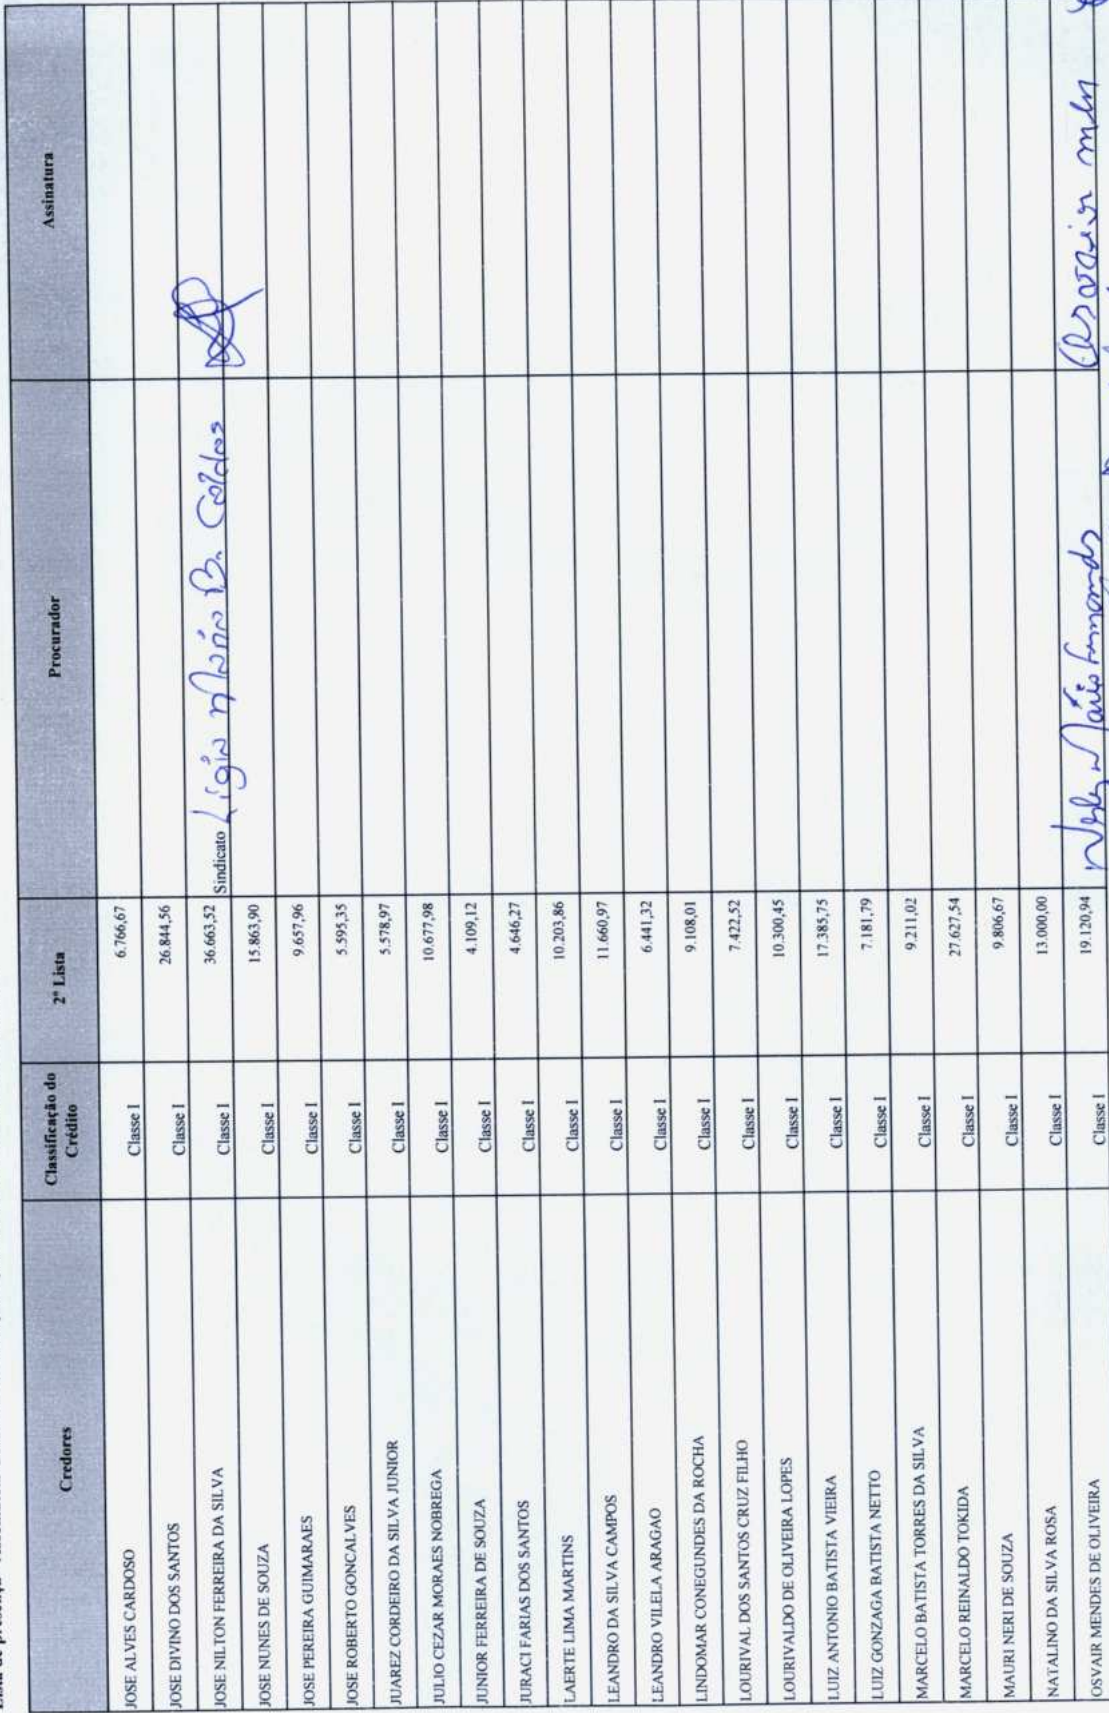 Credores Classificação do Crédito 2ª Lista Procurador Assinatura
JOSE ALVES CARDOSO Classe I 6.766,67
JOSE DIVINO DOS SANTOS Classe I 26.844,56
JOSE NILTON FERREIRA DA SILVA Classe I 36.663,52 Sindicato Ligia Maria B. Caldas
JOSE NUNES DE SOUZA Classe I 15.863,90
JOSE PEREIRA GUIMARAES Classe I 9.657,96
JOSE ROBERTO GONCALVES Classe I 5.595,35
JUAREZ CORDEIRO DA SILVA JUNIOR Classe I 5.578,97
JULIO CEZAR MORAES NOBREGA Classe I 10.677,98
JUNIOR FERREIRA DE SOUZA Classe I 4.109,12
JURACI FARIAS DOS SANTOS Classe I 4.646,27
LAERTE LIMA MARTINS Classe I 10.203,86
LEANDRO DA SILVA CAMPOS Classe I 11.660,97
LEANDRO VILELA ARAGAO Classe I 6.441,32
LINDOMAR CONEGUNDES DA ROCHA Classe I 9.108,01
LOURIVAL DOS SANTOS CRUZ FILHO Classe I 7.422,52
LOURIVALDO DE OLIVEIRA LOPES Classe I 10.300,45
LUIZ ANTONIO BATISTA VIEIRA Classe I 17.385,75
LUIZ GONZAGA BATISTA NETTO Classe I 7.181,79
MARCELO BATISTA TORRES DA SILVA Classe I 9.211,02
MARCELO REINALDO TOKIDA Classe I 27.627,54
MAURI NERI DE SOUZA Classe I 9.806,67
NATALINO DA SILVA ROSA Classe I 13.000,00
OSVAIR MENDES DE OLIVEIRA Classe I 19.120,94